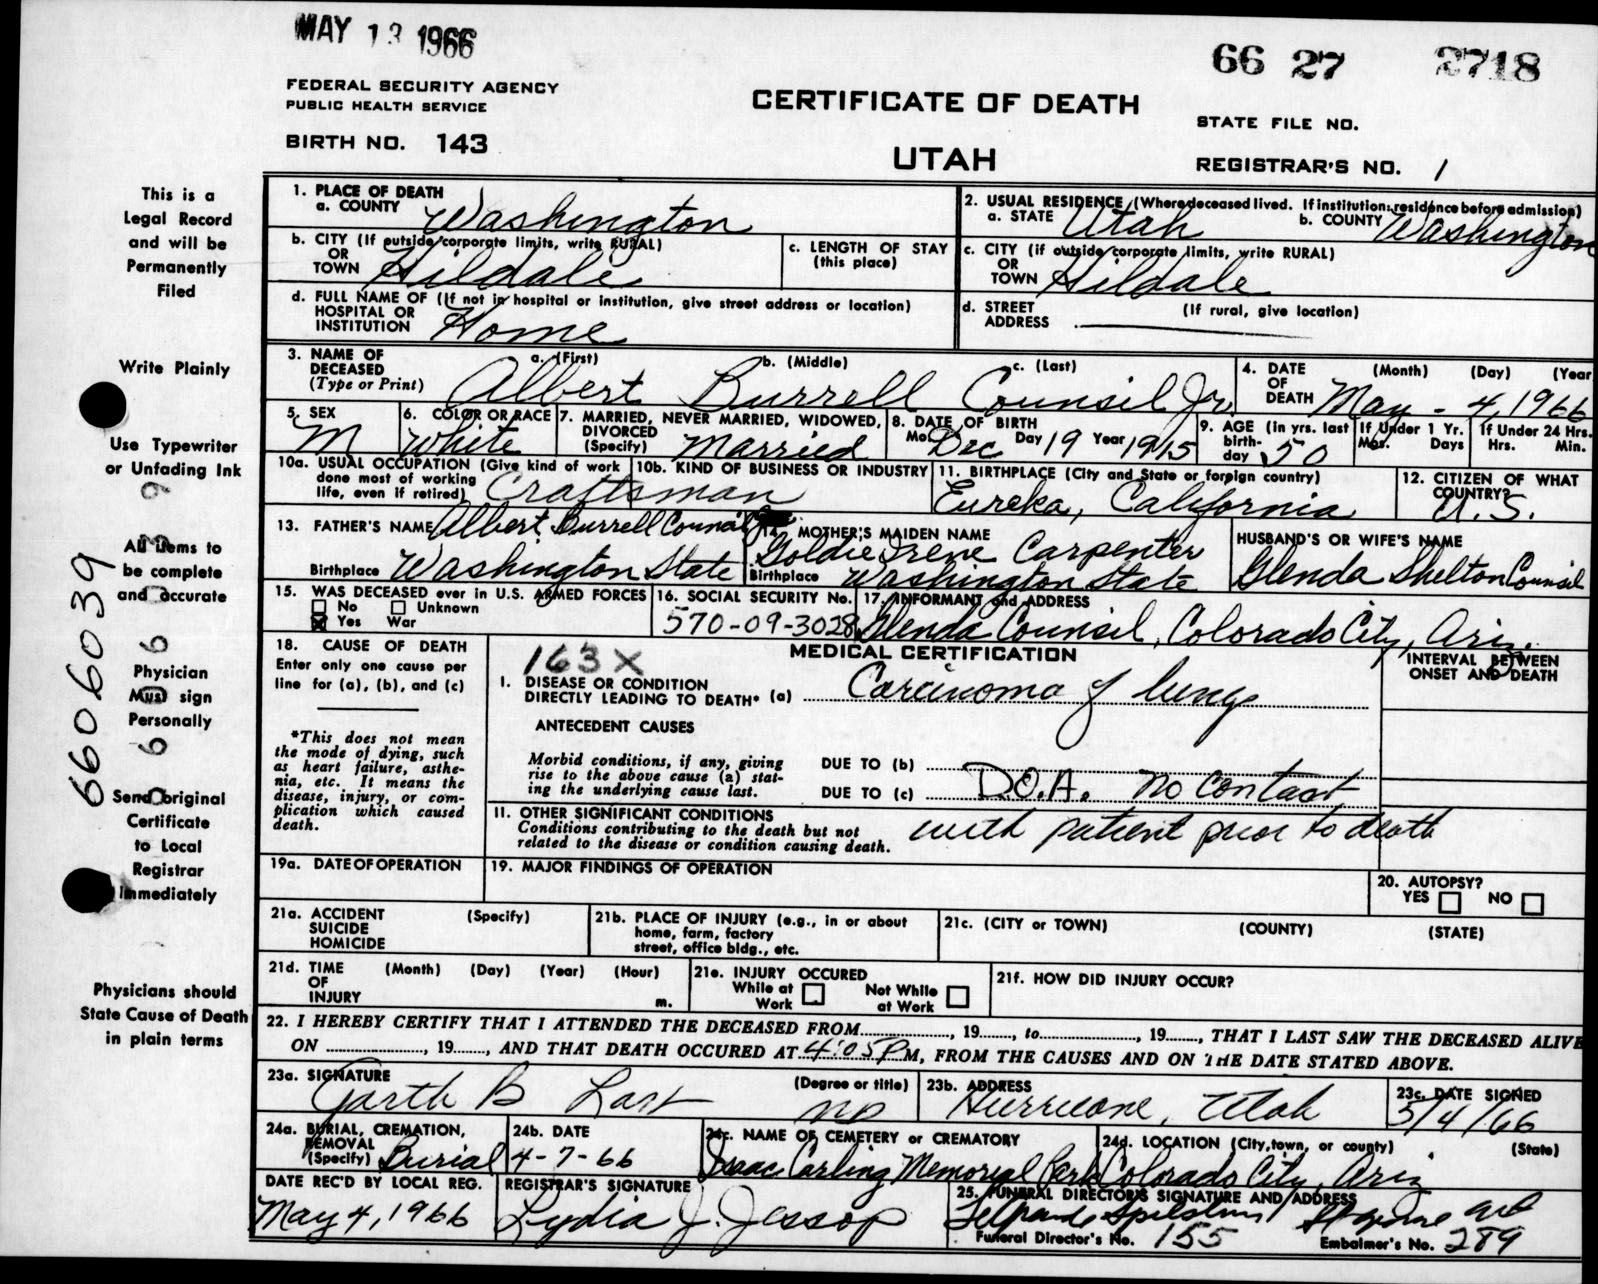 MAY 13 1966
66 27 2718
FEDERAL SECURITY AGENCY
PUBLIC HEALTH SERVICE
BIRTH NO. 143
CERTIFICATE OF DEATH
UTAH
STATE FILE NO.
REGISTRAR'S NO. 1
This is a
Legal Record
and will be
Permanently
Filed
Write Plainly
Use Typewriter
or Unfading Ink
All items to
be complete
and accurate
Physician
Must sign
Personally
Send original
Certificate
to Local
Registrar
Immediately
Physicians should
State Cause of Death
in plain terms
6606039
1. PLACE OF DEATH
a. COUNTY Washington
2. USUAL RESIDENCE (Where deceased lived. If institution: residence before admission)
a. STATE Utah b. COUNTY Washington
b. CITY (If outside corporate limits, write RURAL)
OR
TOWN Hildale
c. LENGTH OF STAY
(this place)
c. CITY (if outside corporate limits, write RURAL)
OR
TOWN Hildale
d. FULL NAME OF (If not in hospital or institution, give street address or location)
HOSPITAL OR
INSTITUTION Home
d. STREET (If rural, give location)
ADDRESS
3. NAME OF DECEASED a. (First) b. (Middle) c. (Last)
(Type or Print) Albert Burrell Counsil Jr.
4. DATE OF DEATH (Month) (Day) (Year
May - 4, 1966
5. SEX
M
6. COLOR OR RACE
White
7. MARRIED, NEVER MARRIED, WIDOWED,
DIVORCED
(Specify) Married
8. DATE OF BIRTH
Mo. Dec Day 19 Year 1915
9. AGE (in yrs. last
birth-
day 50
If Under 1 Yr.
Mos. Days
If Under 24 Hrs.
Hrs. Min.
10a. USUAL OCCUPATION (Give kind of work
done most of working
life, even if retired) Craftsman
10b. KIND OF BUSINESS OR INDUSTRY
11. BIRTHPLACE (City and State or foreign country)
Eureka, California
12. CITIZEN OF WHAT
COUNTRY?
U.S.
13. FATHER'S NAME Albert Burrell Counsil
Birthplace Washington State
14. MOTHER'S MAIDEN NAME
Goldie Irene Carpenter
Birthplace Washington State
HUSBAND'S OR WIFE'S NAME
Glenda Shelton Counsil
15. WAS DECEASED ever in U.S. ARMED FORCES
No Unknown
Yes War
16. SOCIAL SECURITY No.
570-09-3028
17. INFORMANT and ADDRESS
Glenda Counsil, Colorado City, Ariz.
18. CAUSE OF DEATH
Enter only one cause per
line for (a), (b), and (c)
*This does not mean
the mode of dying, such
as heart failure, asthe-
nia, etc. It means the
disease, injury, or com-
plication which caused
death.
163X
MEDICAL CERTIFICATION
INTERVAL BETWEEN
ONSET AND DEATH
I. DISEASE OR CONDITION
DIRECTLY LEADING TO DEATH* (a) Carcinoma of lung
ANTECEDENT CAUSES
Morbid conditions, if any, giving
rise to the above cause (a) stat-
ing the underlying cause last.
DUE TO (b)
DUE TO (c) D.O.A. no contact
11. OTHER SIGNIFICANT CONDITIONS
Conditions contributing to the death but not
related to the disease or condition causing death.
with patient prior to death
19a. DATE OF OPERATION
19. MAJOR FINDINGS OF OPERATION
20. AUTOPSY?
YES NO
21a. ACCIDENT (Specify)
SUICIDE
HOMICIDE
21b. PLACE OF INJURY (e.g., in or about
home, farm, factory
street, office bldg., etc.
21c. (CITY or TOWN) (COUNTY) (STATE)
21d. TIME (Month) (Day) (Year) (Hour)
OF
INJURY m.
21e. INJURY OCCURED
While at Work
Not While at Work
21f. HOW DID INJURY OCCUR?
22. I HEREBY CERTIFY THAT I ATTENDED THE DECEASED FROM, 19, to, 19, THAT I LAST SAW THE DECEASED ALIVE
ON, 19, AND THAT DEATH OCCURED AT 4:05 P M, FROM THE CAUSES AND ON THE DATE STATED ABOVE.
23a. SIGNATURE (Degree or title)
Garth B Last MD
23b. ADDRESS
Hurricane, Utah
23c. DATE SIGNED
5/4/66
24a. BURIAL, CREMATION,
REMOVAL
(Specify) Burial
24b. DATE
4-7-66
24c. NAME OF CEMETERY or CREMATORY
Isaac Carling Memorial Park
24d. LOCATION (City, town, or county) (State)
Colorado City, Ariz
DATE REC'D BY LOCAL REG.
May 4, 1966
REGISTRAR'S SIGNATURE
Lydia J. Jessop
25. FUNERAL DIRECTOR'S SIGNATURE AND ADDRESS
Funeral Director's No. 155
Embalmer's No. 289